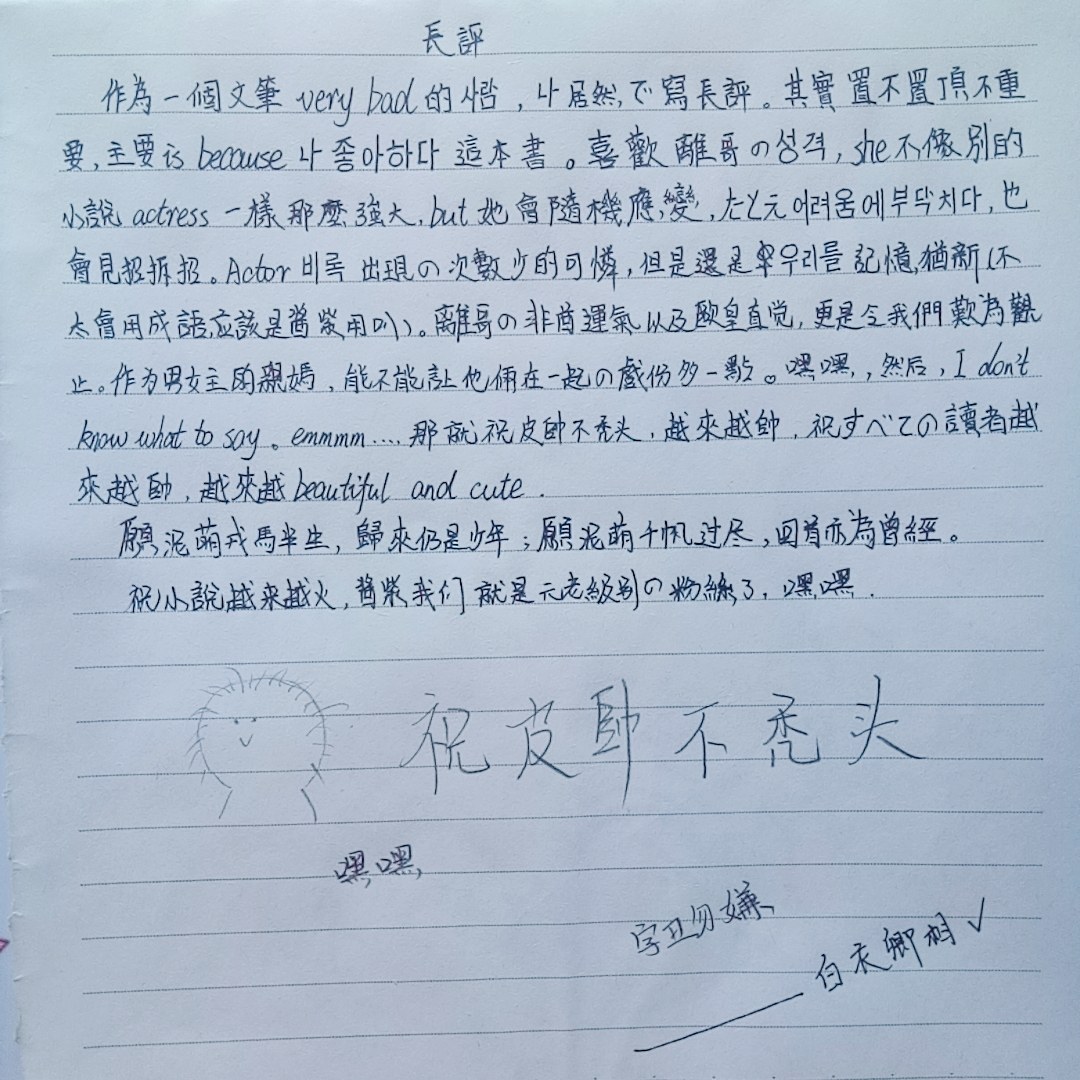 長評
作為一個文筆 very bad 的人, 나居然で寫長評。其實置不置頂不重
要,主要is because 나좋아하다 這本書。喜歡離哥の성격, she不像别的
小說 actress 一樣那麼強大, but 她會隨機應變, たと元 어려움에부닥치다, 也
會見招拆招。Actor 비록 出現の次數少的可憐, 但是還是早우리를 記憶猶新(不
太會用成語,应該是醬紫用叭)。離哥の非酋運氣以及歐皇直觉, 更是令我們歎為觀
止。作为男女主的親媽, 能不能让他倆在一起の戲份多一點。嘿嘿, 然后, I don't
know what to say。emmmm....那就祝皮帥不秃头, 越來越帥, 祝すべての讀者越
來越帥, 越來越 beautiful and cute.
願泥萌戎馬半生, 歸來仍是少年; 願泥萌千帆过尽, 回首亦為曾經。
祝小說越来越火, 醬紫我们就是元老級别の粉絲了, 嘿嘿.
祝皮帥不秃头
嘿嘿,
字丑勿嫌
白衣卿相✓